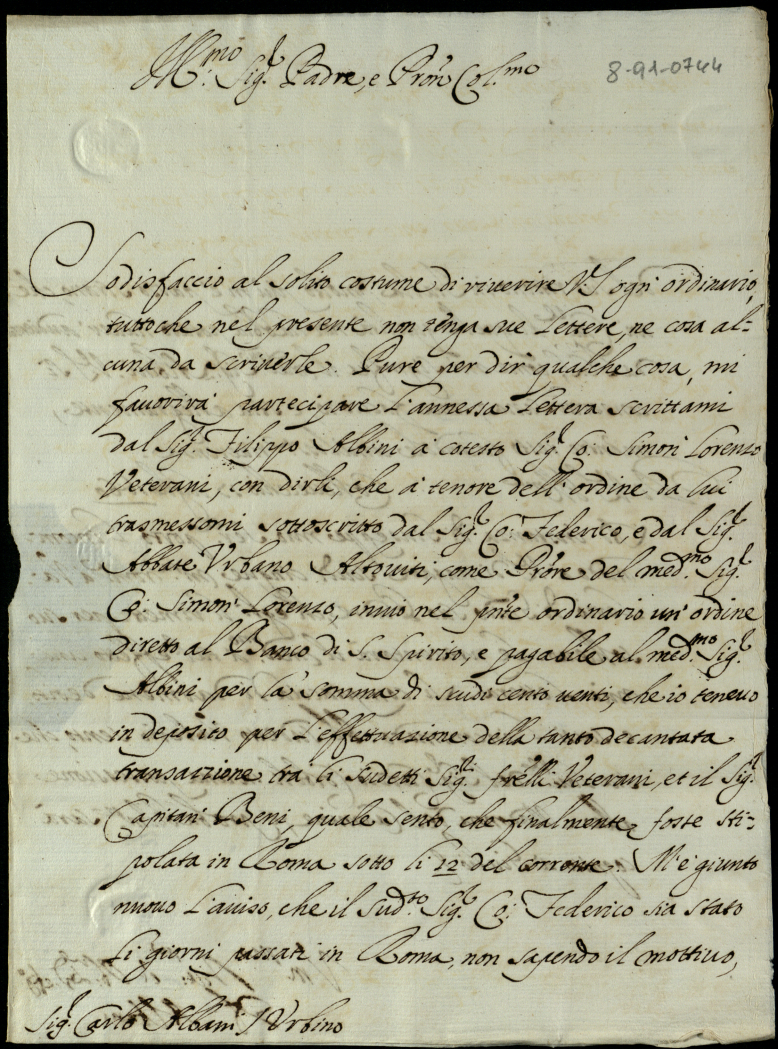 Ill.mo Sig.r Padre, e Pron Col.mo
8-91-0744
Sodisfaccio al solito costume di riverire V.S. ogn' ordinario,
tuttoche nel presente non tenga sue Lettere, ne cosa al=
cuna da scriverle. Pure per dir qualche cosa, mi
favorirà partecipare l'annessa Lettera scrittami
dal Sig.r Filippo Albini à cotesto Sig.r Co: Simon Lorenzo
Veterani, con dirli, che à tenore dell'ordine da lui
trasmessomi sottoscritto dal Sig.r Co: Federico, e dal Sig.r
Abbate Urbano Altoviti, come Pròre del med.mo Sig.r
Co: Simon Lorenzo, invio nel pnte ordinario un' ordine
diretto al Banco di S. Spirito, e pagabile al med.mo Sig.r
Albini per la somma di scudi cento venti, che io tenevo
in deposito per l'effettuazione della tanto decantata
transazzione trà li sudetti Sig.ri frèlli Veterani, et il Sig.r
Capitan Beni, quale sento, che finalmente fosse sti=
polata in Roma sotto li 12 del corrente. M'è giunto
nuovo l'aviso, che il sud.to Sig.r Co: Federico sia stato
li giorni passati in Roma, non sapendo il mottivo,
Sig.r Carlo Albani / Urbino